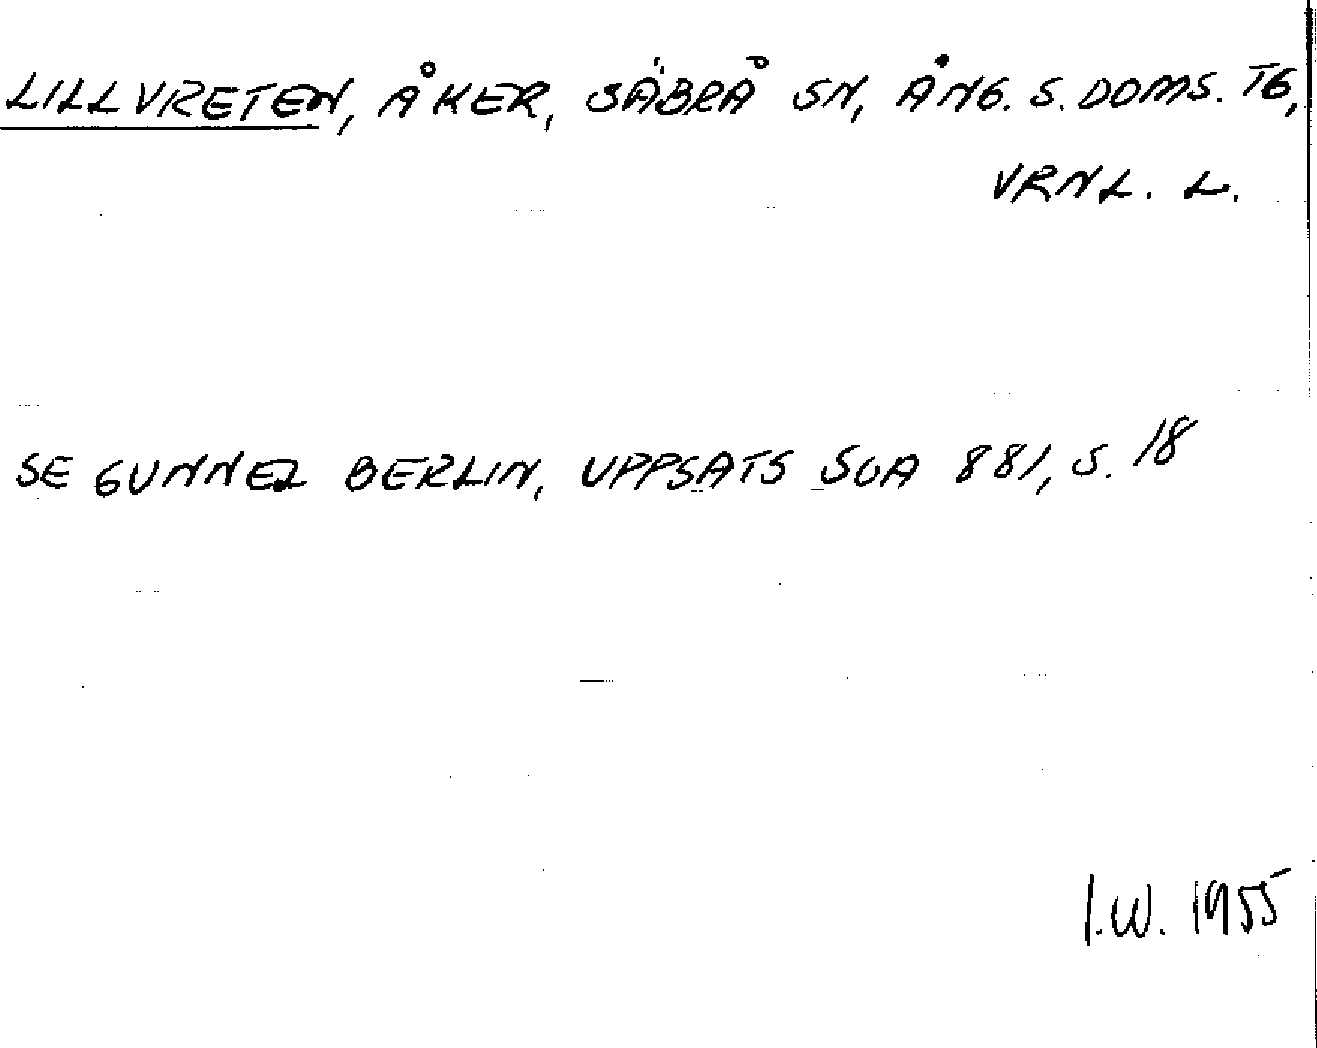 LILLVRETEN, ÅKER, SÄBRÅ SN, ÅNG. S. DOMS. TG,
VRNL. L.
SE GUNNEL BERLIN, UPPSATS SOA 881, S. 18
I.W. 1955